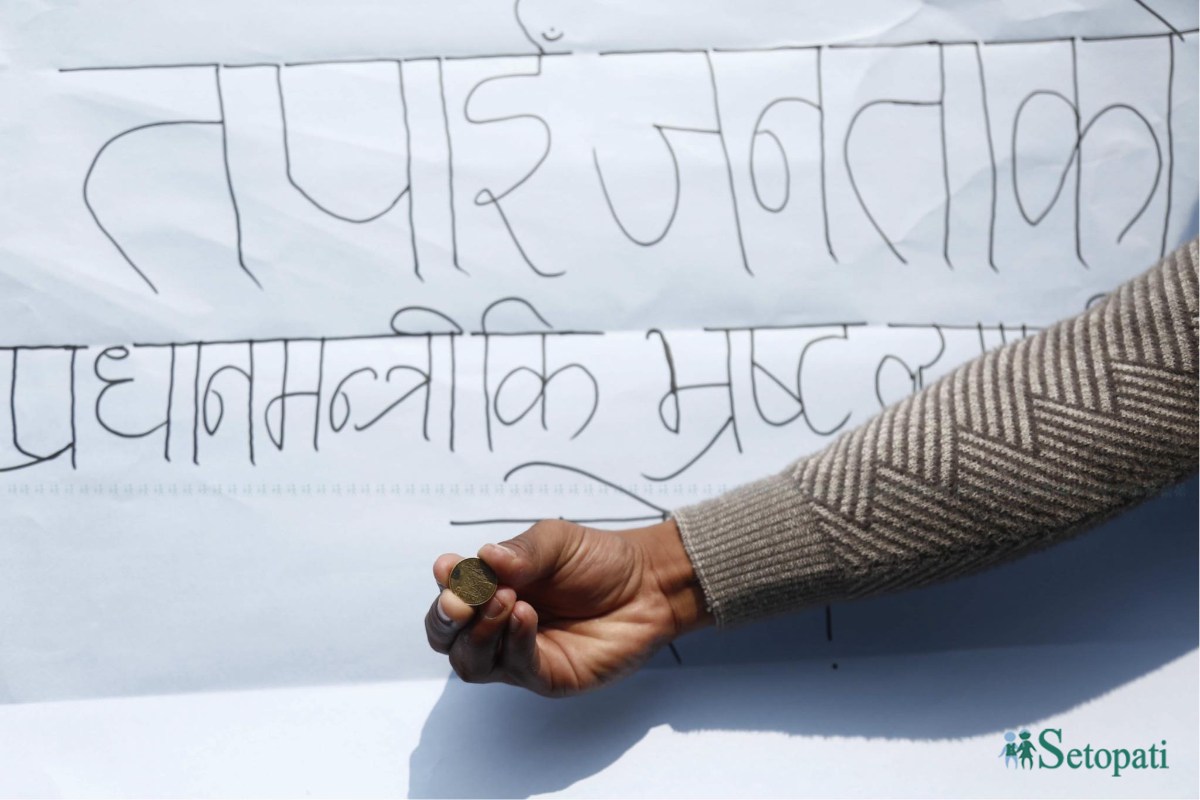 तपाईँ जनताको
प्रधानमन्त्री कि भ्रष्ट
Setopati